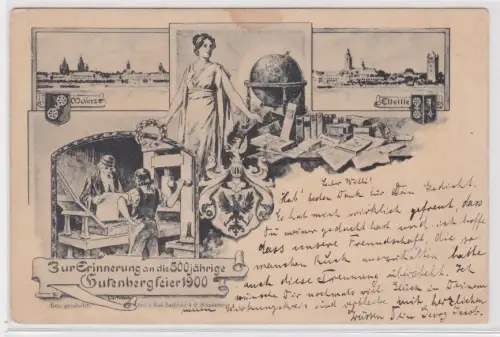 Mainz
Eltville
Zur Erinnerung an die 500jährige
Gutenbergfeier 1900
Ges. geschützt.
Lieber Willi!
Hab' besten Dank für Dein Gedicht.
Es hat mich wirklich gefreut, dass
Du meiner gedacht hast und ich hoffe
dass unsere Freundschaft, die so
manchen Ruck ausgehalten hatte
auch diese Trennung übersteht. Ich
wünsche Dir nochmals viel Glück in Deinem
neuen Wirkungskreis und verbleibe mit herzlichen
Grüssen Dein Georg Jacob.